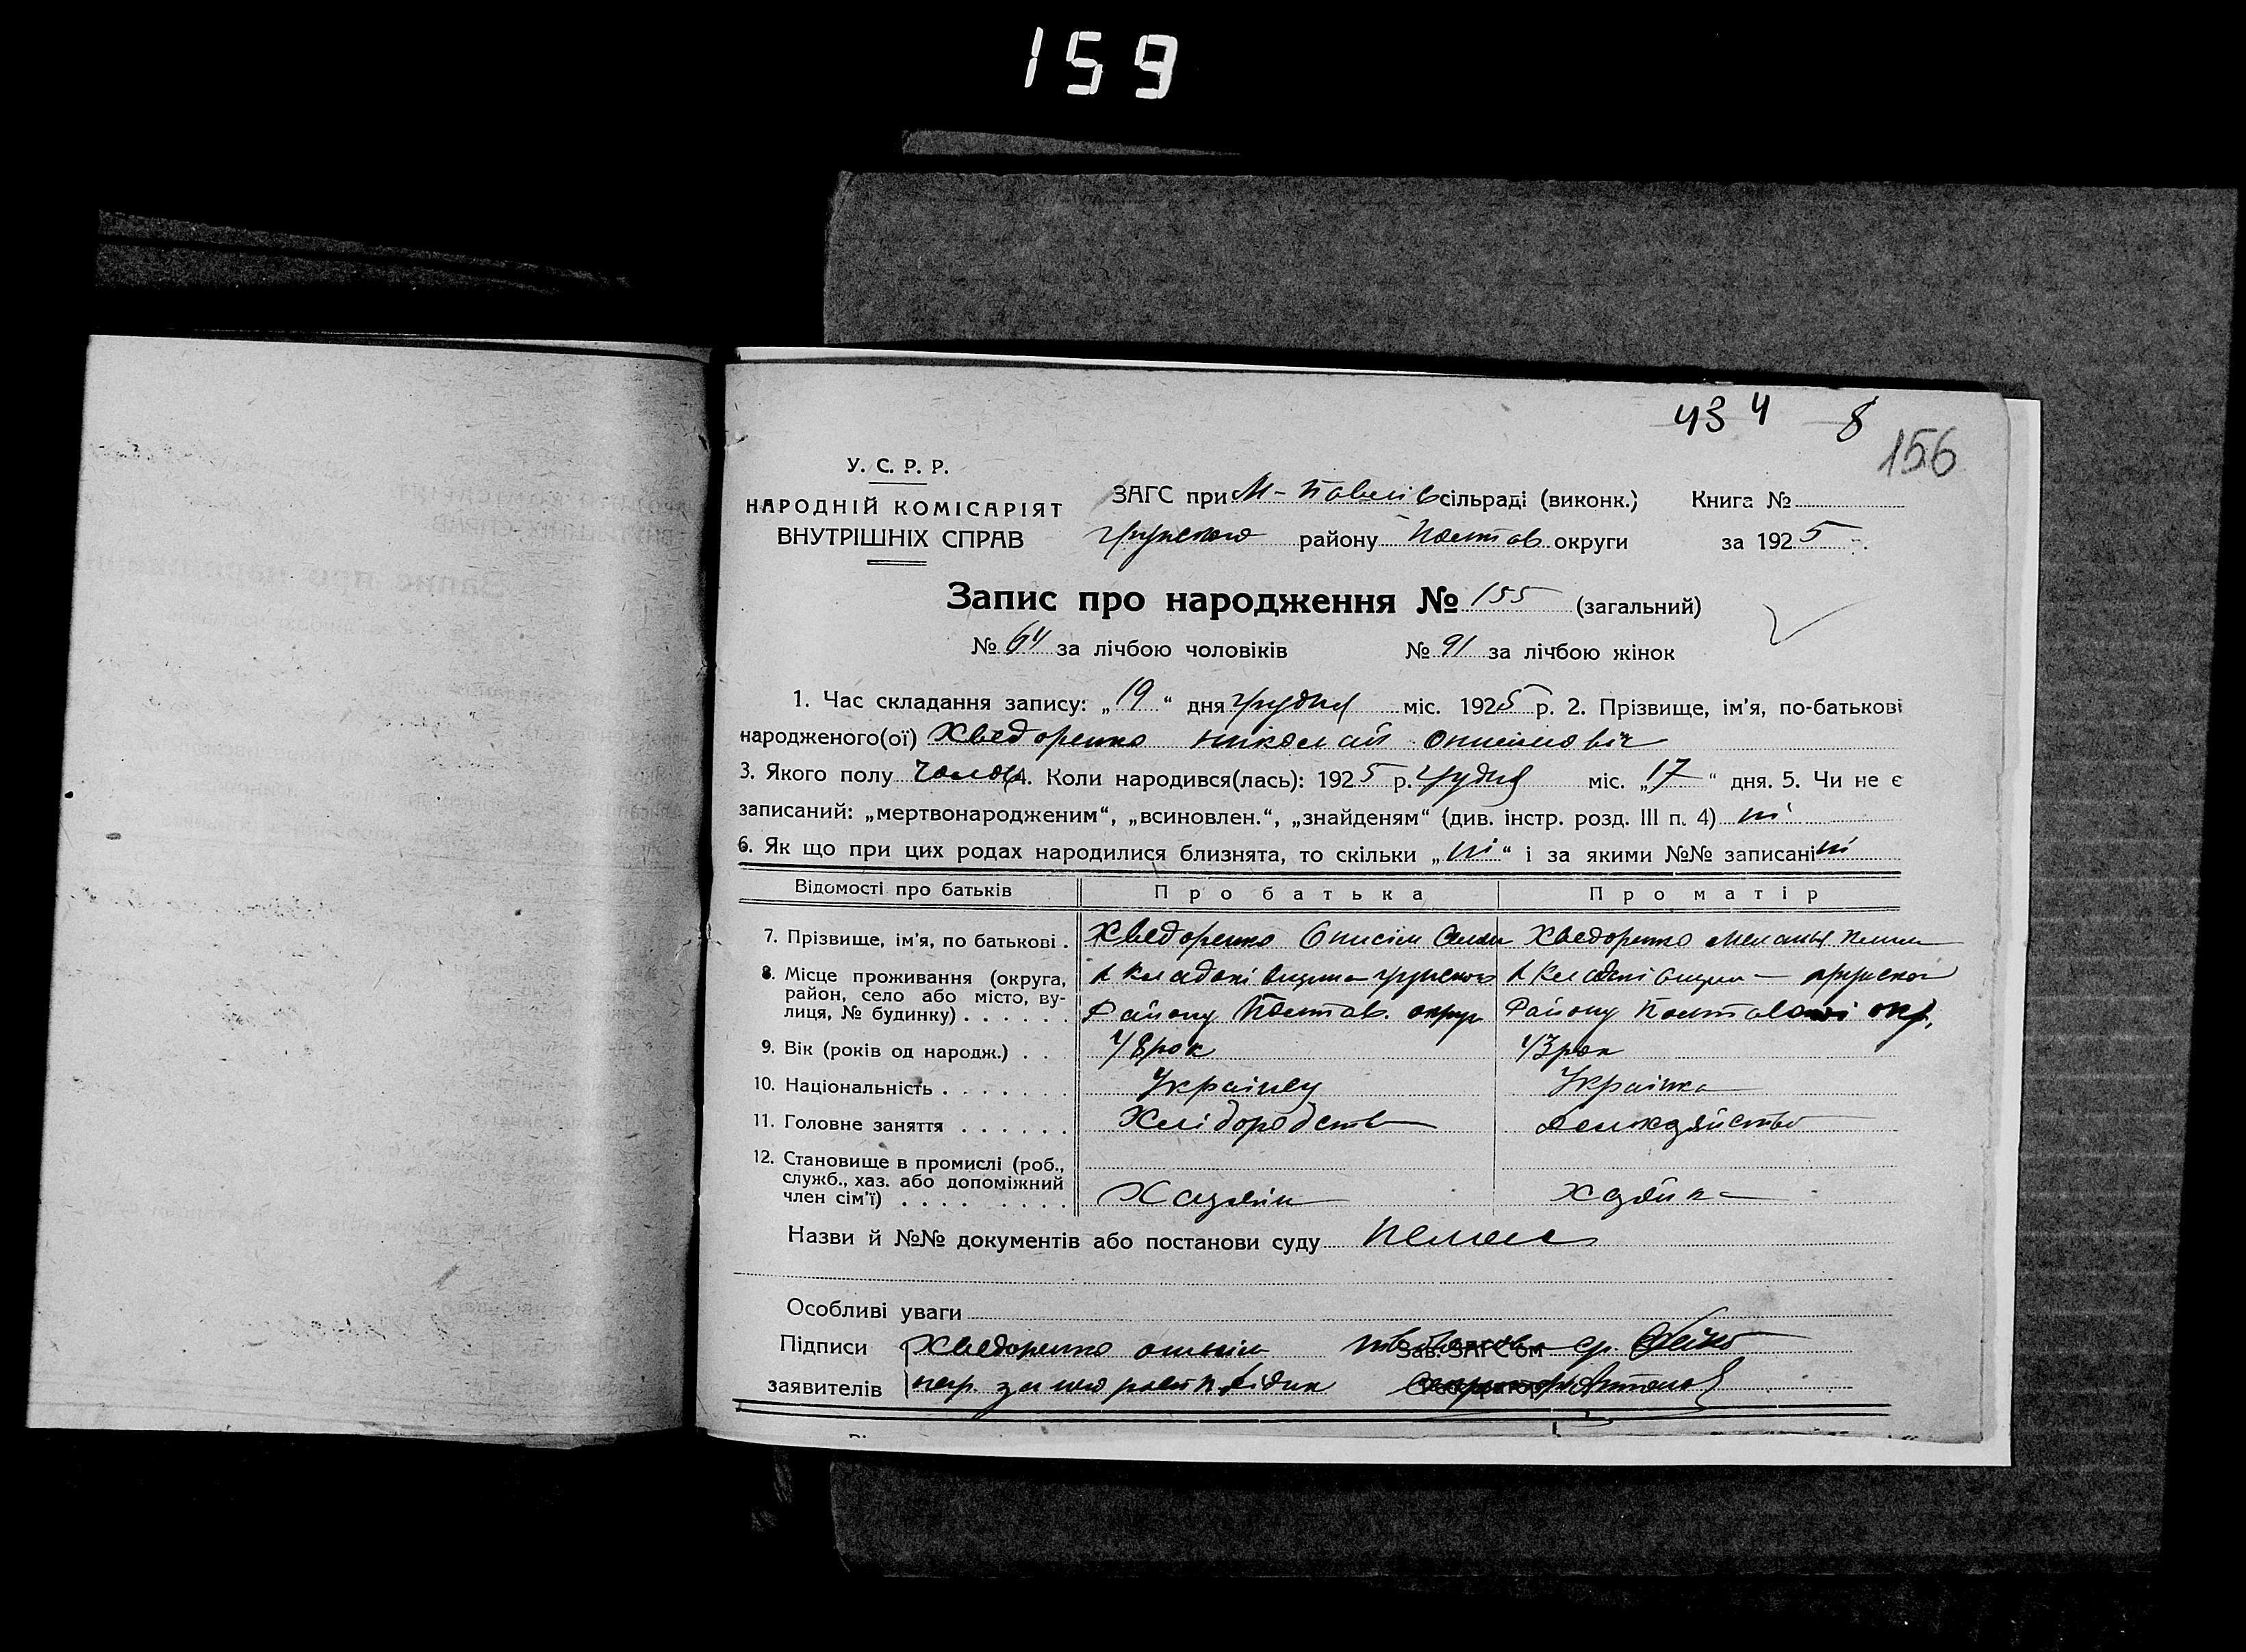 159
434 8
156
У. С. Р. Р.
НАРОДНІЙ КОМІСАРІЯТ
ВНУТРІШНІХ СПРАВ
ЗАГС при М- Павлів сільраді (виконк.) Книга №
Грунского району Полтав округи за 1925
Запис про народження № 155 (загальний)
№ 64 за лічбою чоловіків № 91 за лічбою жінок
1. Час складання запису: „19“ дня грудня міс. 1925 р. 2. Прізвище, ім’я, по-батькові
народженого(ої) Хведоренко Николай Онисимовіч
3. Якого полу чолов 4. Коли народився(лась): 1925 р. грудня міс. „17“ дня. 5. Чи не є
записаний: „мертвонародженим“, „всиновлен.“, „знайденям“ (див. інстр. розд. III п. 4) ні
6. Як що при цих родах народилися близнята, то скільки „ні“ і за якими №№ записані ні
Відомості про батьків Про батька Про матір
7. Прізвище, ім’я, по батькові . Хведоренко Онисім Хведоренко
8. Місце проживання (округа,
район, село або місто, ву-
лиця, № будинку) . . . . . .
Району Полтав. округ Району
9. Вік (років од народж.) . . 48 рок 43 рок
10. Національність . . . . . . . Українец Українка
11. Головне заняття . . . . . . Хліборобство
12. Становище в промислі (роб.,
служб., хаз. або допоміжний
член сім’ї) . . . . . . . . Хазяїн Хазяйка
Назви й №№ документів або постанови суду Немає
Особливі уваги
Підписи Хведоренко Зав. ЗАГС’ом
заявителів